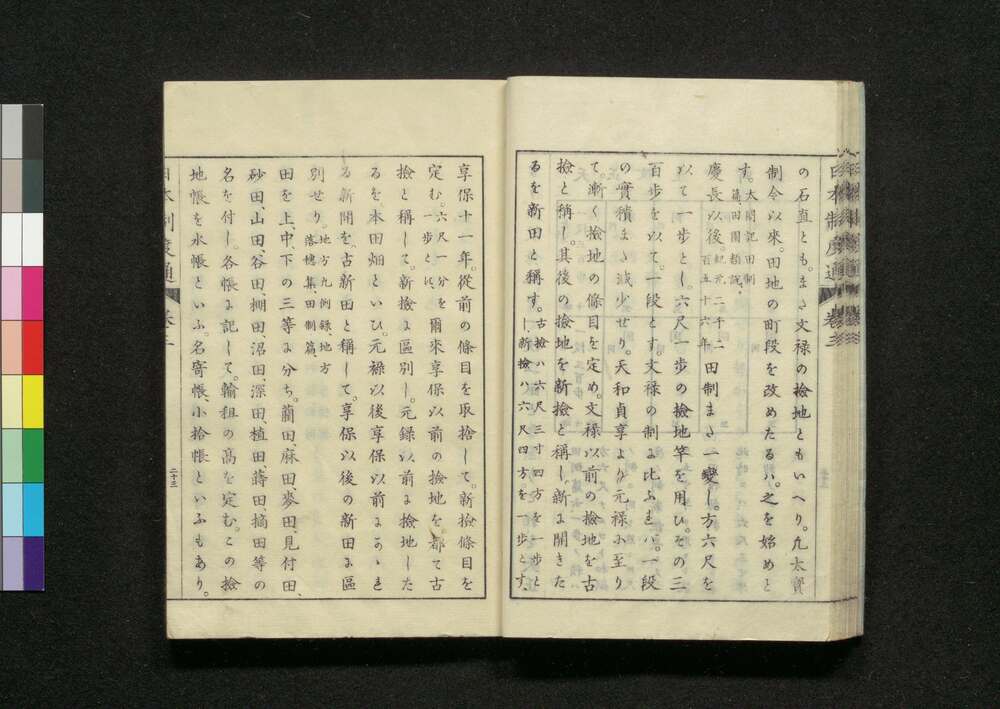 の石直とも。また文祿の撿地ともいへり。凡太寶
制令以來。田地の町段を改めたるハ。之を始めと
す。太閤記田制篇田園類説。
慶長以後。紀元二千二百五十六年田制また一變し。方六尺を
以て一步とし。六尺一步の撿地竿を用ひ。その三
百步を以て。一段とす。文祿の制に比ふれハ。一段
の實積また減少せり。天和貞享より元祿に至り
て。漸く撿地の條目を定め。文祿以前の撿地を古
撿と稱し。其後の撿地を新撿と稱し。新に開きた
るを新田と稱す。古撿ハ六尺三寸四方を一步とし新撿ハ六尺四方を一步とす、
享保十一年。從前の條目を取捨して。新撿條目を
定む。六尺一分を一步と爾來享保以前の撿地を。都て古
撿と稱して。新撿に區別し。元録以前に撿地した
るを。本田畑といひ。元祿以後享保以前にかゝ
る新開を。古新田と稱して。享保以後の新田に區
別せり。地方凡例録、地方落穗集、田制篇、
田を上、中、下の三等に分ち。藺田、麻田麥田、見付田、
砂田、山田、谷田棚田沼田、深田、植田、蒔田摘田等の
名を付し。各帳に記して。輸租の高を定む。この撿
地帳を水帳といふ。名寄帳小拾帳といふもあり。
日本制度通 卷三
二十三
日本制度通 卷三